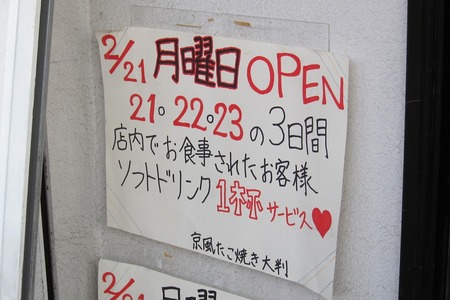 2/21 月曜日 OPEN
21。22。23の3日間
店内でお食事されたお客様
ソフトドリンク1杯サービス♥
京風たこ焼き大判
2/21 月曜